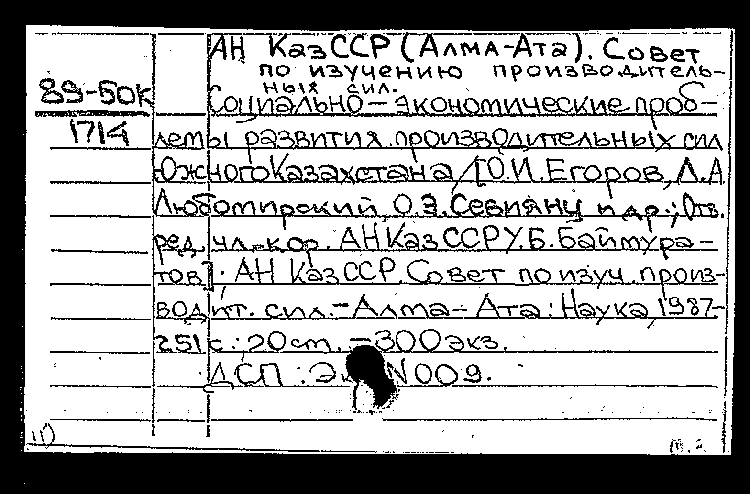 АН КазССР (Алма-Ата). Совет
по изучению производитель-
ных сил.
89-50К
Социально-экономические проб-
1714
лемы развития производительных сил
Южного Казахстана / [О.И. Егоров, Л.А.
Любомирский, О.Э. Севиянц и др.; Отв.
ред. чл.-кор. АН КазССР У.Б. Баймура-
тов]; АН КазССР. Совет по изуч. произ-
водит. сил. - Алма-Ата: Наука, 1987-
251 с.: 20 cm. - 300 экз.
ДСП: Эк N 009.